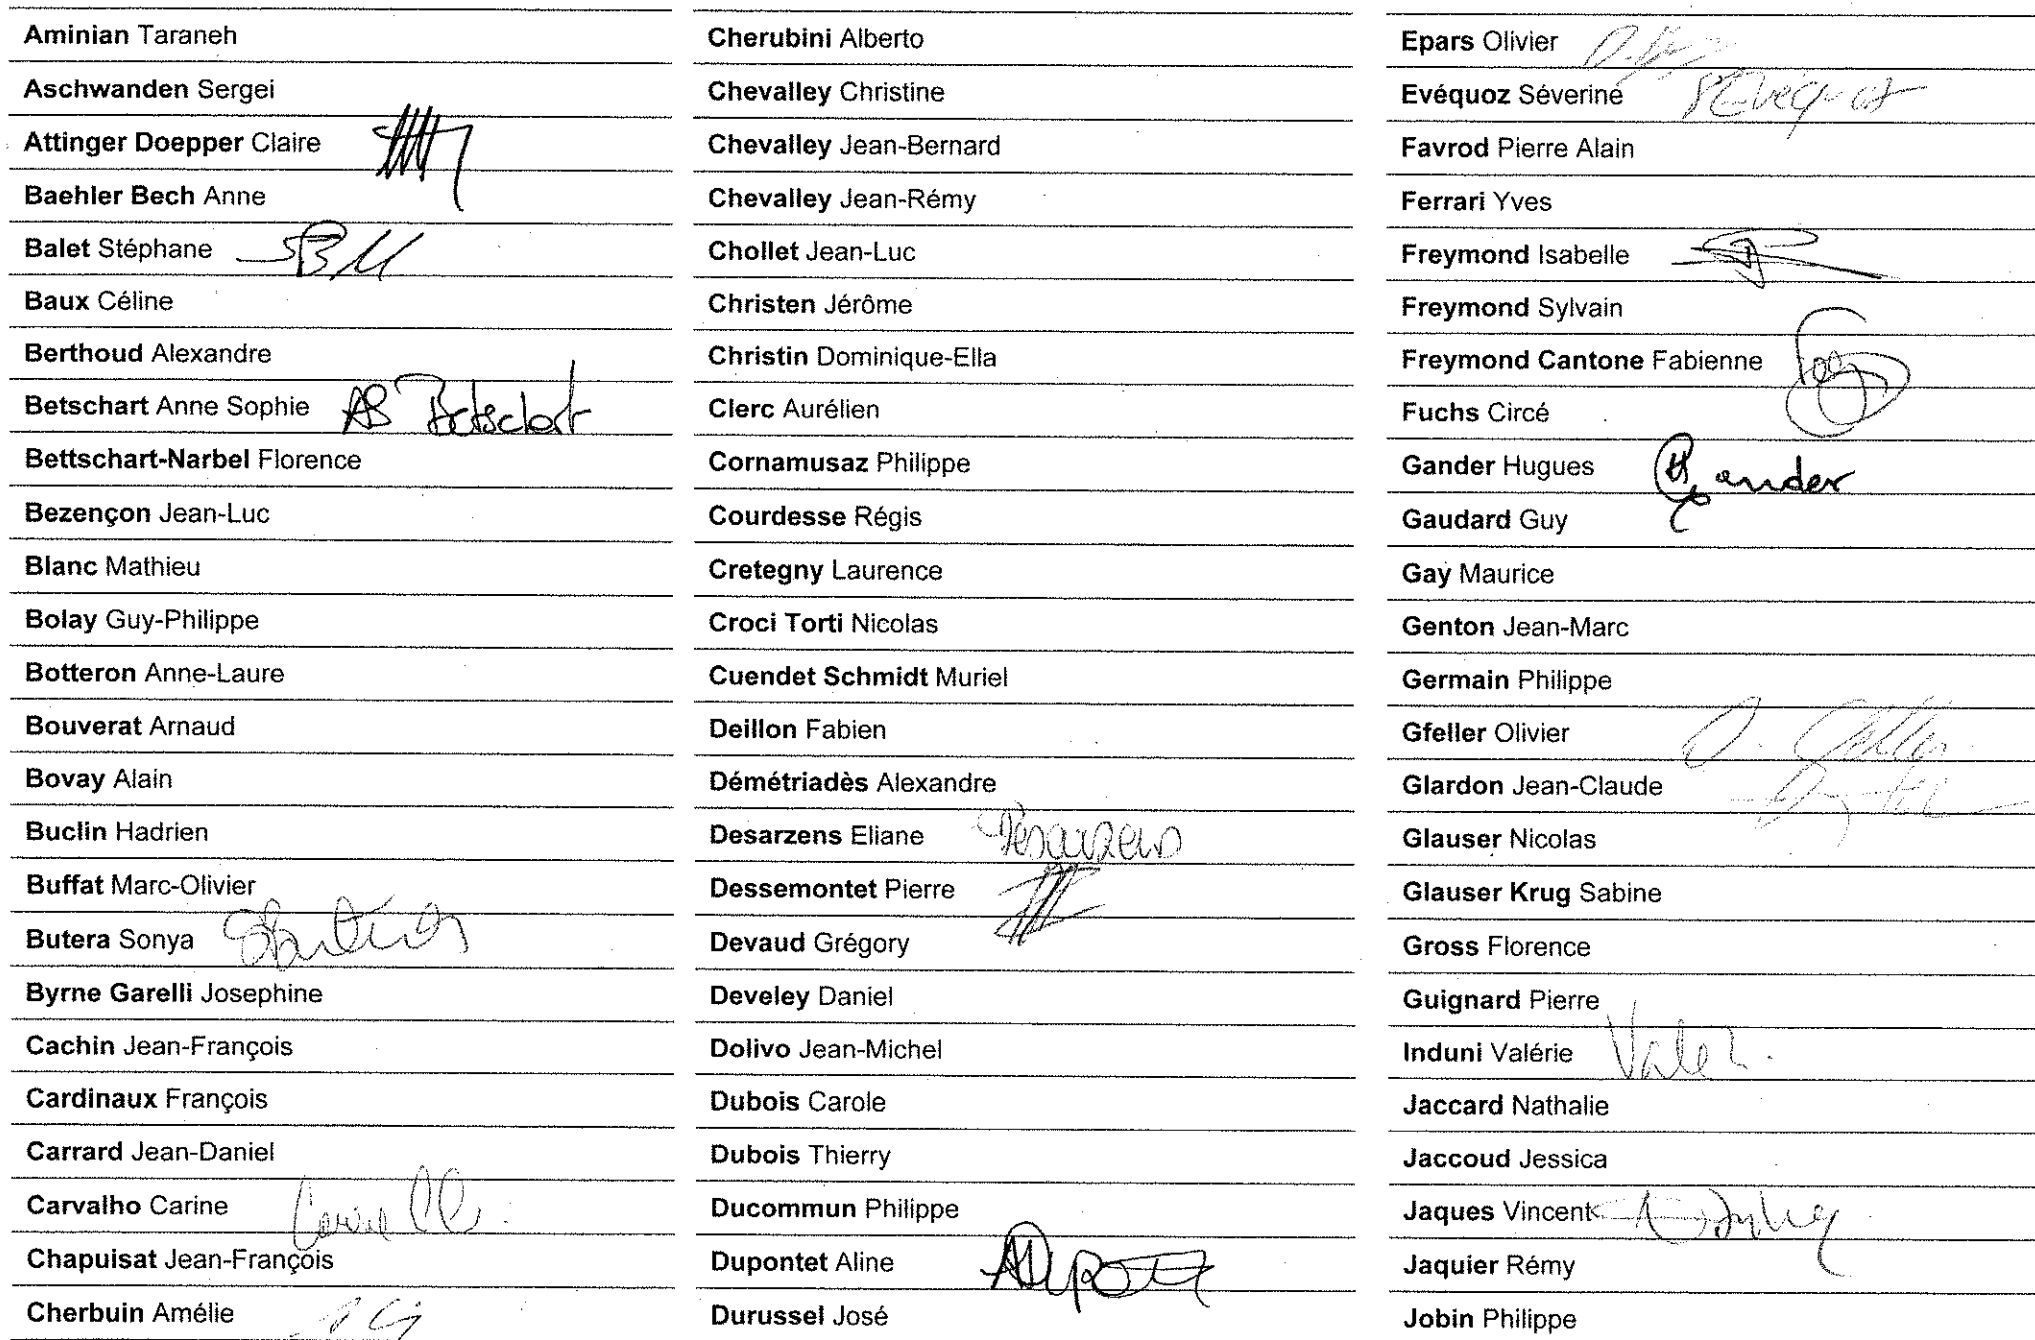 Aminian Taraneh
Aschwanden Sergei
Attinger Doepper Claire
Baehler Bech Anne
Balet Stéphane
Baux Céline
Berthoud Alexandre
Betschart Anne Sophie AS Betschart
Bettschart-Narbel Florence
Bezençon Jean-Luc
Blanc Mathieu
Bolay Guy-Philippe
Botteron Anne-Laure
Bouverat Arnaud
Bovay Alain
Buclin Hadrien
Buffat Marc-Olivier
Butera Sonya
Byrne Garelli Josephine
Cachin Jean-François
Cardinaux François
Carrard Jean-Daniel
Carvalho Carine Carine
Chapuisat Jean-François
Cherbuin Amélie
Cherubini Alberto
Chevalley Christine
Chevalley Jean-Bernard
Chevalley Jean-Rémy
Chollet Jean-Luc
Christen Jérôme
Christin Dominique-Ella
Clerc Aurélien
Cornamusaz Philippe
Courdesse Régis
Cretegny Laurence
Croci Torti Nicolas
Cuendet Schmidt Muriel
Deillon Fabien
Démétriadès Alexandre
Desarzens Eliane Desarzens
Dessemontet Pierre
Devaud Grégory
Develey Daniel
Dolivo Jean-Michel
Dubois Carole
Dubois Thierry
Ducommun Philippe
Dupontet Aline
Durussel José
Epars Olivier
Evéquoz Séverine SEvéquoz
Favrod Pierre Alain
Ferrari Yves
Freymond Isabelle
Freymond Sylvain
Freymond Cantone Fabienne
Fuchs Circé
Gander Hugues Gander
Gaudard Guy
Gay Maurice
Genton Jean-Marc
Germain Philippe
Gfeller Olivier O. Gfeller
Glardon Jean-Claude
Glauser Nicolas
Glauser Krug Sabine
Gross Florence
Guignard Pierre
Induni Valérie
Jaccard Nathalie
Jaccoud Jessica
Jaques Vincent
Jaquier Rémy
Jobin Philippe